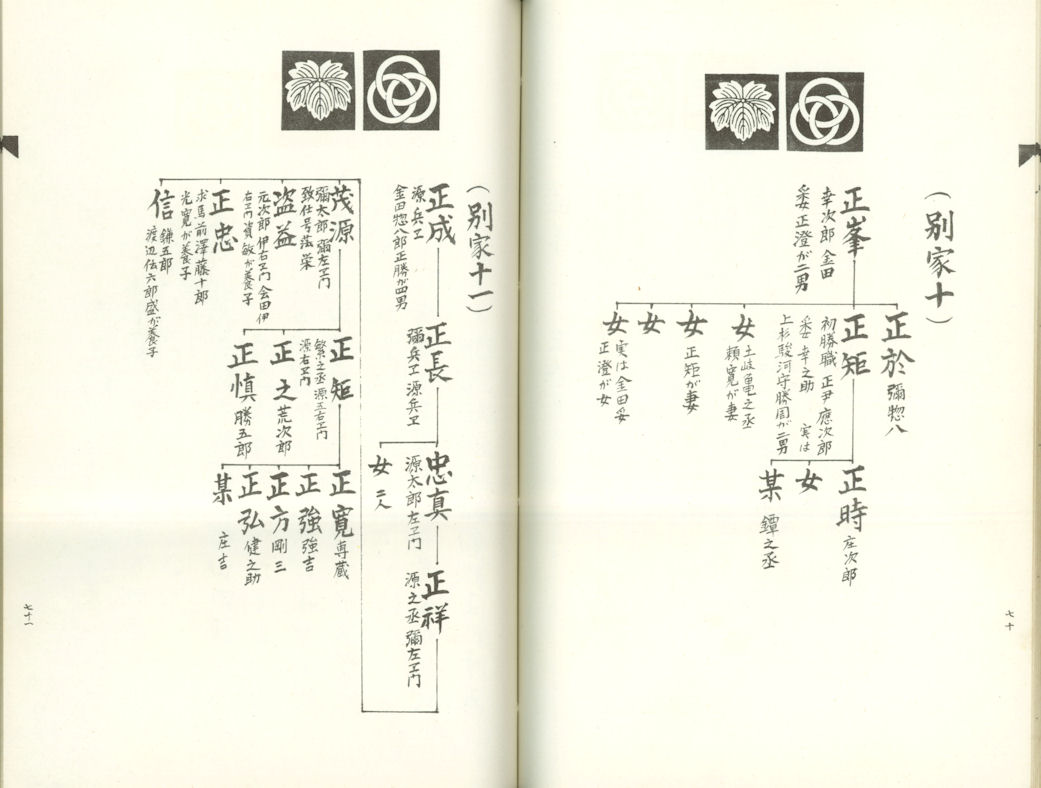 （別家十）
正峯
幸次郎 金田
采女 正澄が二男
正於 彌惣八
正矩
初勝職 正尹 應次郎
采女 幸之助 実は
上杉駿河守勝周が二男
女 土岐亀之丞
頼寛が妻
女 正矩が妻
女
女 実は金田采女
正澄が女
正時 庄次郎
女
某 鐔之丞
七十
（別家十一）
正成
源兵ヱ
金田惣八郎正勝が四男
正長
彌兵ヱ 源兵ヱ
忠真
源太郎 左ヱ門
女 二人
正祥
源之丞 彌左ヱ門
茂源
彌太郎 彌左ヱ門
致仕号 栄
盗益
元次郎 伊右ヱ門 会田伊
右ヱ門資敏が養子
正忠
求馬 前澤藤十郎
光寛が養子
信 鎌五郎
渡辺伝六郎盛が養子
正矩
繁之丞 源五右ヱ門
源右ヱ門
正之 荒次郎
正慎 勝五郎
正寛 専蔵
正強 強吉
正方 剛三
正弘 健之助
某 庄吉
七十一